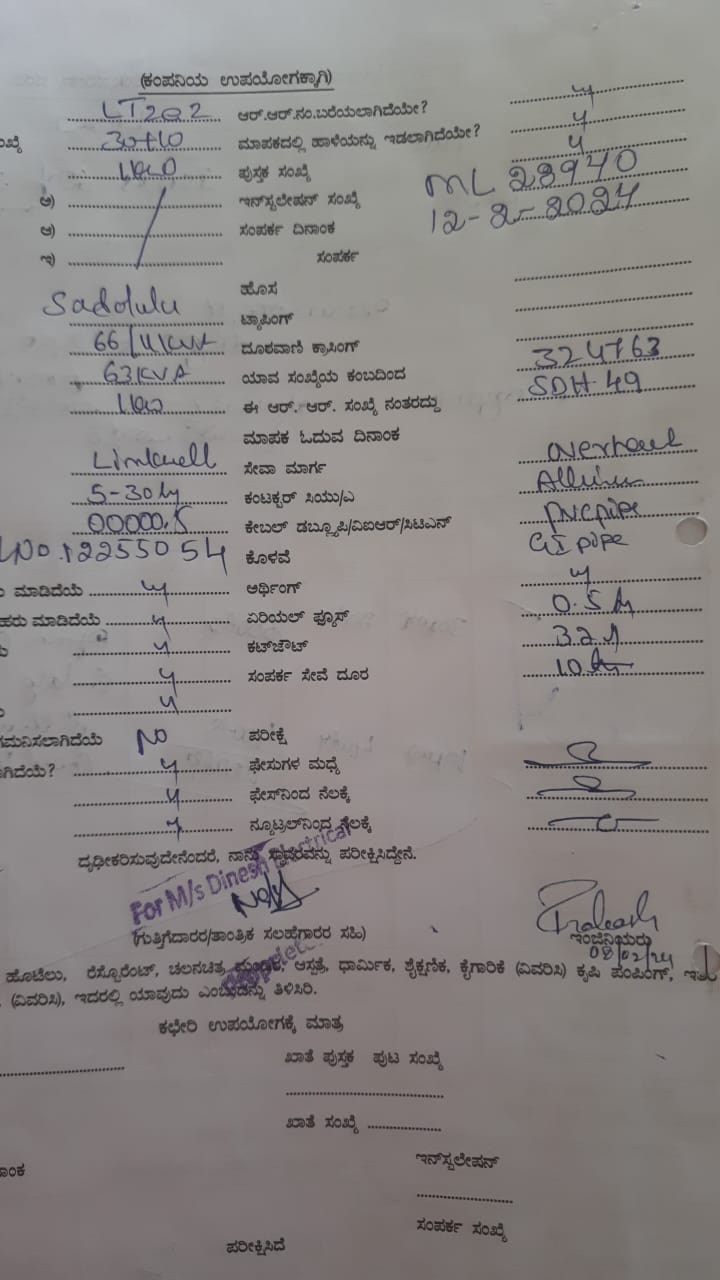 (ಕಂಪನಿಯ ಉಪಯೋಗಕ್ಕಾಗಿ)
LT2a2 ಆರ್.ಆರ್.ನಂ.ಬರೆಯಲಾಗಿದೆಯೇ? y
30+10 ಮಾಪಕದಲ್ಲಿ ಹಾಳೆಯನ್ನು ಇಡಲಾಗಿದೆಯೇ? y
ಪುಸ್ತಕ ಸಂಖ್ಯೆ y
ಅ) ಇನ್‌ಸ್ಟಲೇಷನ್ ಸಂಖ್ಯೆ ML 28940
ಆ) ಸಂಪರ್ಕ ದಿನಾಂಕ 12-2-2024
ಇ) ಸಂಪರ್ಕ
ಹೊಸ
ಟ್ಯಾಪಿಂಗ್
66/11KVA ದೂರವಾಣಿ ಕ್ರಾಸಿಂಗ್
63KVA ಯಾವ ಸಂಖ್ಯೆಯ ಕಂಬದಿಂದ 324763
ಈ ಆರ್. ಆರ್. ಸಂಖ್ಯೆ ನಂತರದ್ದು SDH-49
ಮಾಪಕ ಓದುವ ದಿನಾಂಕ
ಸೇವಾ ಮಾರ್ಗ overhead
5-30 ಕಂಟಕ್ಟರ್ ಸಿಯು/ಎ
00000.5 ಕೇಬಲ್ ಡಬ್ಲ್ಯೂಪಿ/ವಿಐಆರ್/ಸಿಟಿಎಸ್ PVC pipe
No.12255054 ಕೊಳವೆ GI pipe
ಮಾಡಿದೆಯೆ y ಅರ್ಥಿಂಗ್ y
ಹರು ಮಾಡಿದೆಯೆ y ಏರಿಯಲ್ ಫ್ಯೂಸ್ 0.5
y ಕಟ್‌ಔಟ್ 32
y ಸಂಪರ್ಕ ಸೇವೆ ದೂರ 10
y
ಗಮನಿಸಲಾಗಿದೆಯೆ NO ಪರೀಕ್ಷೆ
y ಫೇಸುಗಳ ಮಧ್ಯೆ
y ಫೇಸ್‌ನಿಂದ ನೆಲಕ್ಕೆ
y ನ್ಯೂಟ್ರಲ್‌ನಿಂದ ನೆಲಕ್ಕೆ
ದೃಢೀಕರಿಸುವುದೇನೆಂದರೆ, ನಾನು ಸ್ಥಾವರವನ್ನು ಪರೀಕ್ಷಿಸಿದ್ದೇನೆ.
For M/s Dinesh Electrical
(ಗುತ್ತಿಗೆದಾರರ/ತಾಂತ್ರಿಕ ಸಲಹೆಗಾರರ ಸಹಿ) ಇಂಜಿನಿಯರು
08/02/24
ಹೊಟೆಲು, ರೆಸ್ಟೊರೆಂಟ್, ಚಲನಚಿತ್ರ ಆಸ್ಪತ್ರೆ, ಧಾರ್ಮಿಕ, ಶೈಕ್ಷಣಿಕ, ಕೈಗಾರಿಕೆ (ವಿವರಿಸಿ) ಕೃಷಿ ಪಂಪಿಂಗ್,
(ವಿವರಿಸಿ), ಇದರಲ್ಲಿ ಯಾವುದು ಎಂಬುದನ್ನು ತಿಳಿಸಿರಿ.
ಕಛೇರಿ ಉಪಯೋಗಕ್ಕೆ ಮಾತ್ರ
ಖಾತೆ ಪುಸ್ತಕ ಪುಟ ಸಂಖ್ಯೆ
ಖಾತೆ ಸಂಖ್ಯೆ
ಇನ್‌ಸ್ಟಲೇಷನ್
ಸಂಪರ್ಕ ಸಂಖ್ಯೆ
ಪರೀಕ್ಷಿಸಿದೆ